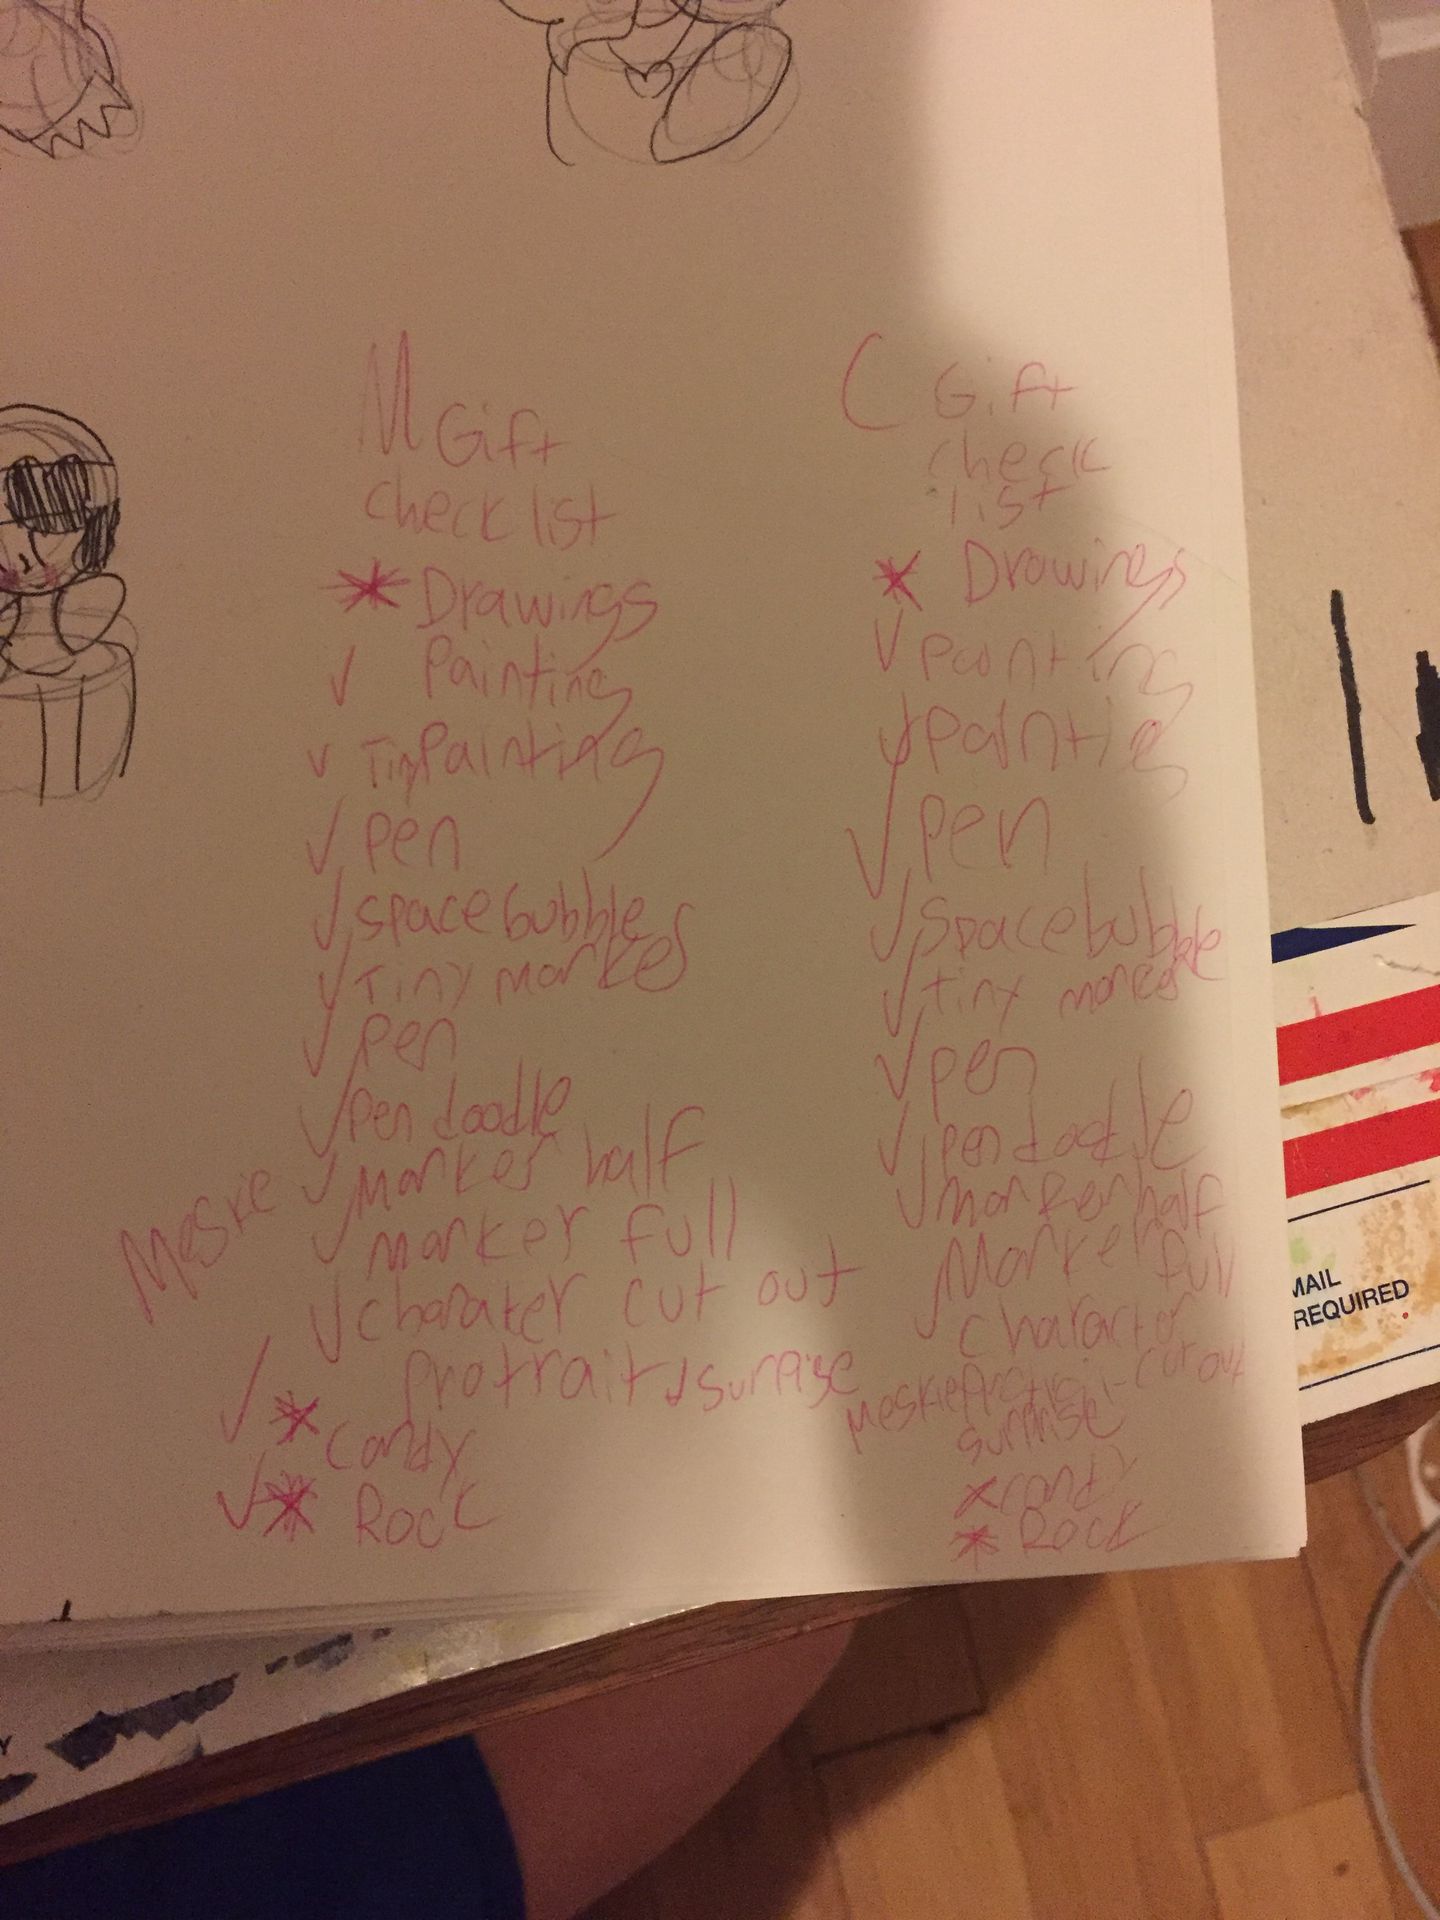 M Gift
check list
* Drawings
✓ Painting
✓ Tiny Painting
✓ pen
✓ space bubble
✓ Tiny marker
✓ pen
✓ pen doodle
✓ marker half
✓ marker full
Meskie
✓ charater cut out
protrait ✓ surprise
✓ * Candy
✓ * Rock
C Gift
check
list
* Drawings
✓ painting
✓ paintig
✓ pen
✓ Space bubble
✓ tiny
✓ pen
✓ pen doodle
✓ marker half
✓ Marker
full
character
cut out
Meskie
surprise
candy
* Rock
MAIL
REQUIRED